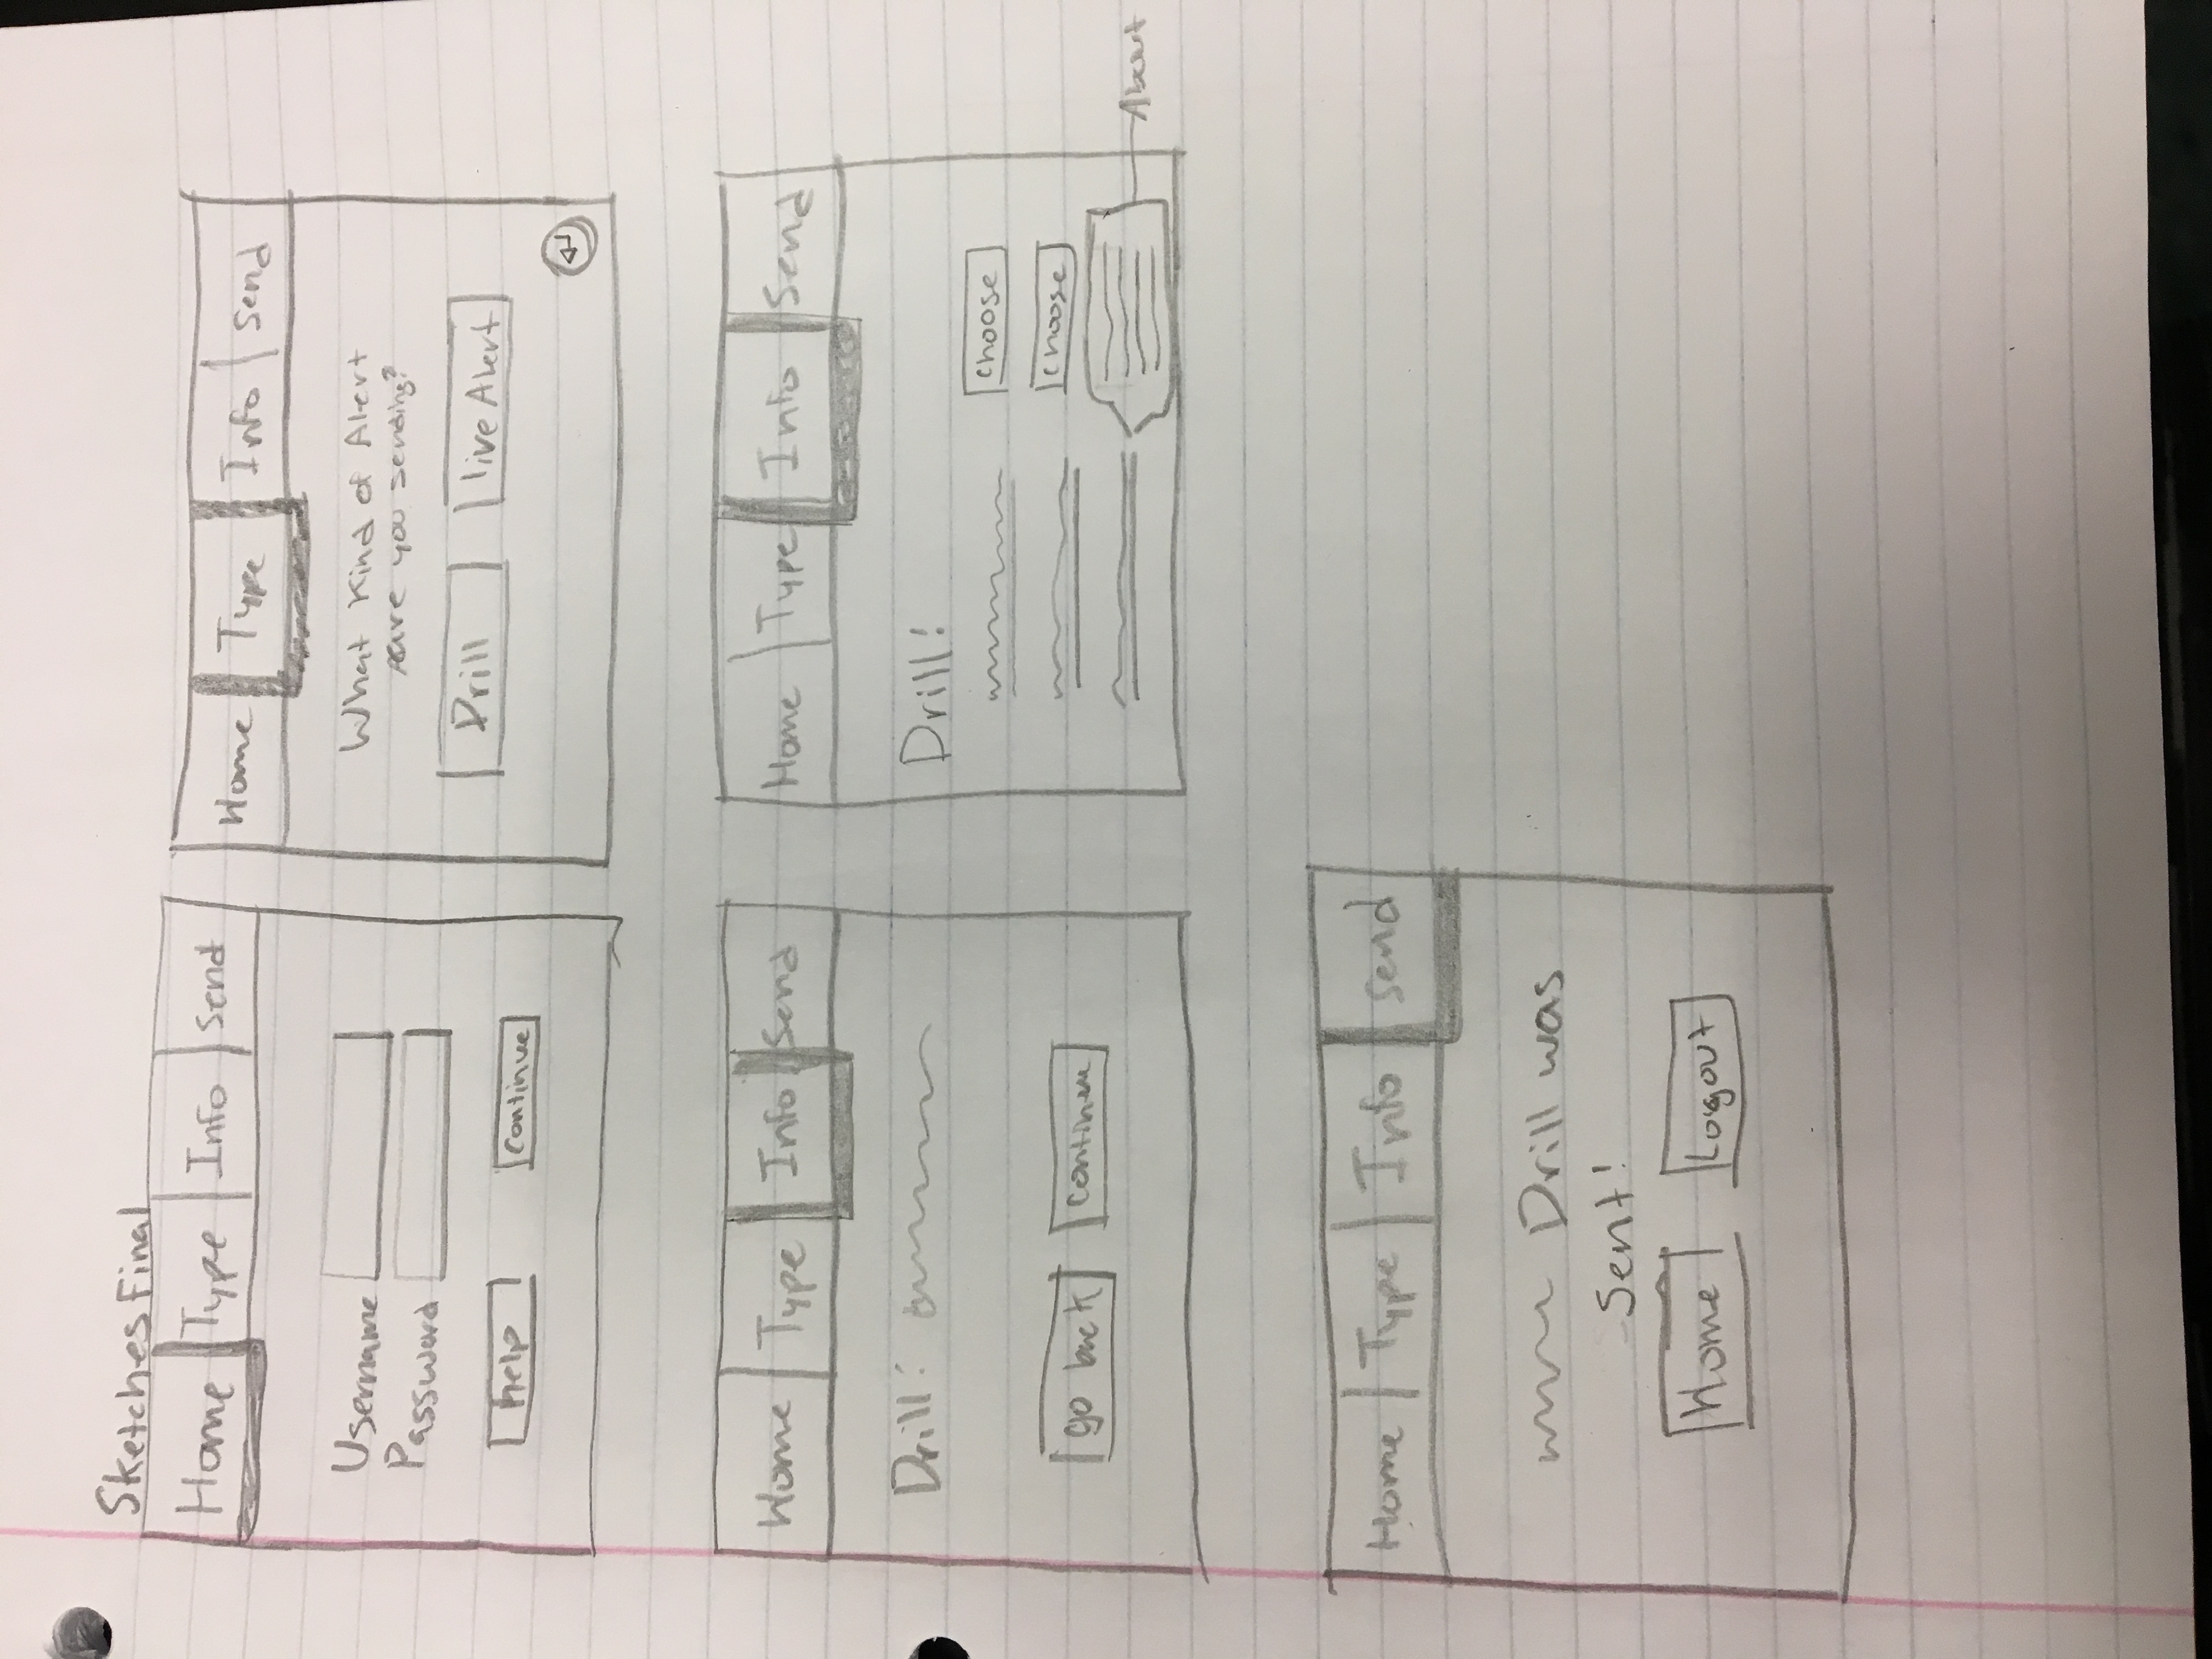 Sketches Final
Home Type Info Send
Username
Password
help continue
Home Type Info Send
What Kind of Alert
are you sending?
Drill live Alert
Home Type Info Send
Drill:
go back continue
Home Type Info Send
Drill!
choose
choose
About
Home Type Info Send
Drill was
Sent!
Home Logout